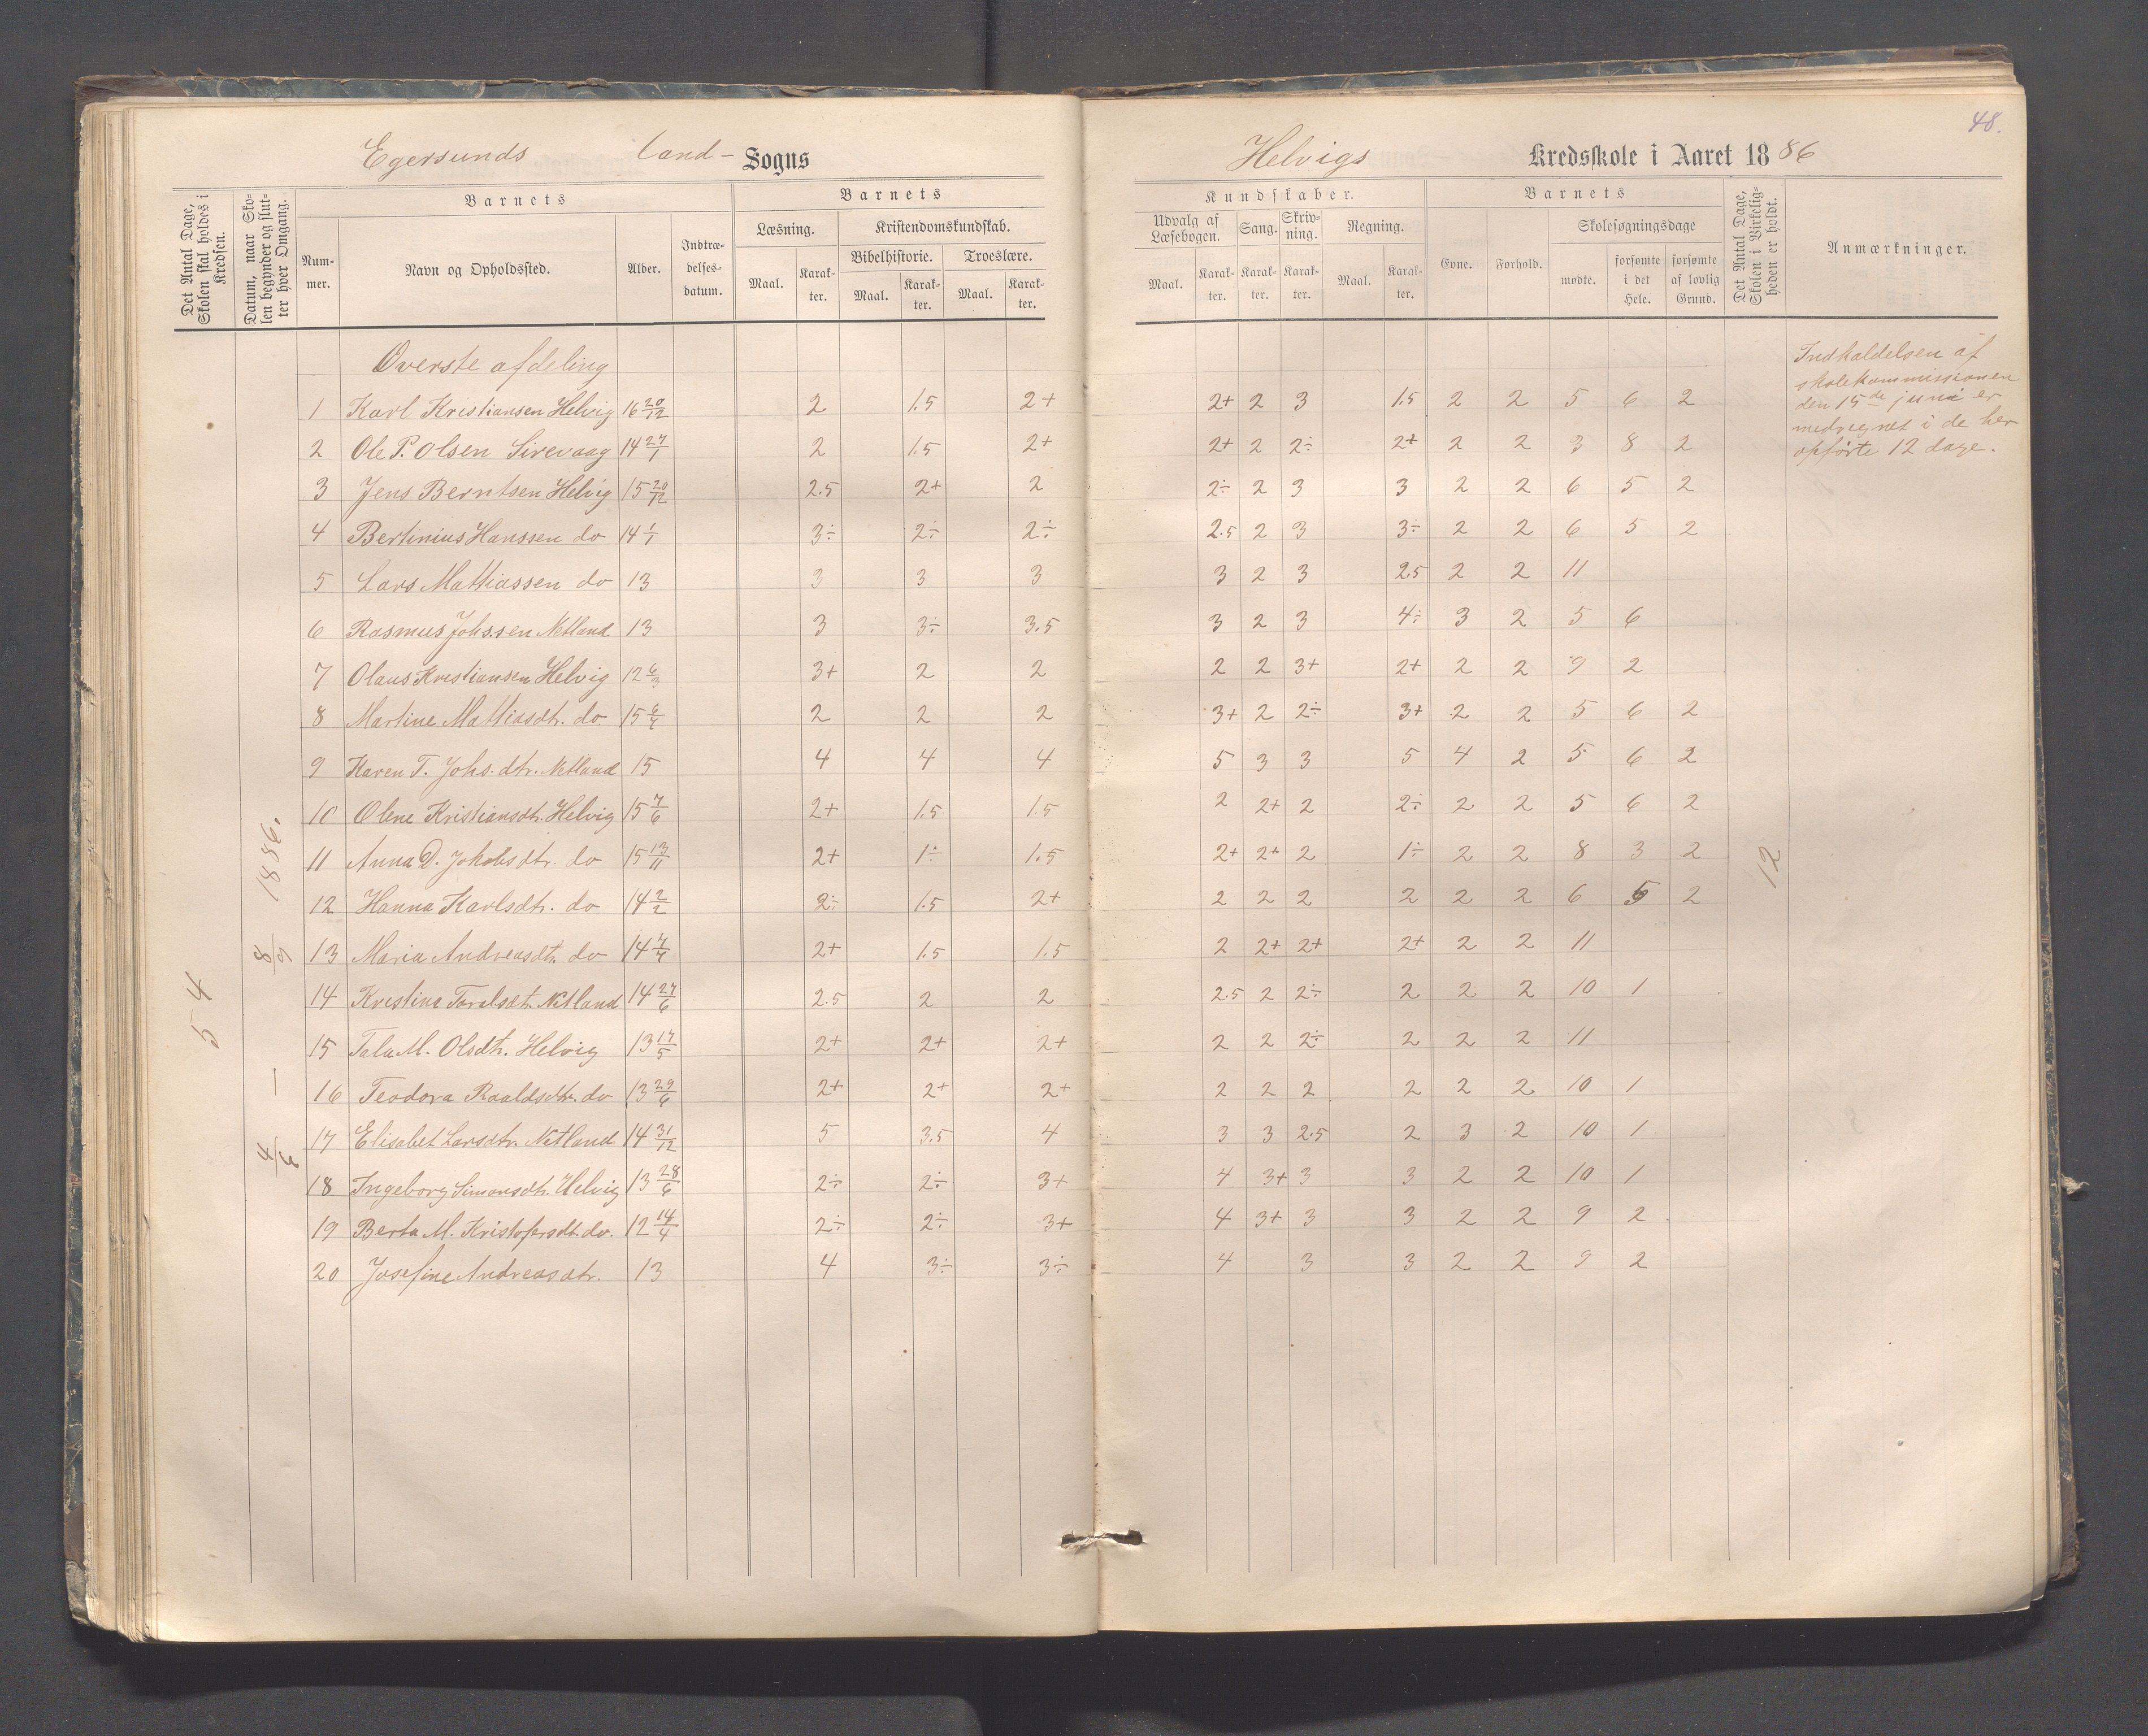 48.
Egersunds land- Sogns
Helvigs Kredsskole i Aaret 1886
Det Antal Dage, Skolen skal holdes i Kredsen.
Datum, naar Skolen begynder og slutter hver Omgang.
Barnets
Nummer.
Navn og Opholdssted.
Alder.
Indtrædelsesdatum.
Barnets
Læsning.
Maal.
Karakter.
Kristendomskundskab.
Bibelhistorie.
Maal.
Karakter.
Troeslære.
Maal.
Karakter.
Kundskaber.
Udvalg af Læsebogen.
Maal.
Karakter.
Sang.
Karakter.
Skrivning.
Karakter.
Regning.
Maal.
Karakter.
Barnets
Evne.
Forhold.
Skolesøgningsdage
mødte.
forsømte i det Hele.
forsømte af lovlig Grund.
Det Antal Dage, Skolen i Virkeligheden er holdt.
Anmærkninger.
Øverste afdeling
1 Karl Kristiansen Helvig 16 20/12 2 1.5 2+ 2+ 2 3 1.5 2 2 5 6 2
2 Ole P. Olsen Sirevaag 14 27/1 2 1.5 2+ 2+ 2 2÷ 2+ 2 2 3 8 2
3 Jens Berntsen Helvig 15 20/12 2.5 2+ 2 2÷ 2 3 3 2 2 6 5 2
4 Bertinius Hanssen do 14 1/1 3÷ 2÷ 2÷ 2.5 2 3 3÷ 2 2 6 5 2
5 Lars Mathiassen do 13 3 3 3 3 2 3 2.5 2 2 11
6 Rasmus Johs.sen Netland 13 3 3÷ 3.5 3 2 3 4÷ 3 2 5 6
7 Olaus Kristiansen Helvig 12 6/3 3+ 2 2 2 2 3+ 2+ 2 2 9 2
8 Martine Mathiasdt. do 15 6/7 2 2 2 3+ 2 2÷ 3+ 2 2 5 6 2
9 Karen T. Johs.dtr. Netland 15 4 4 4 5 3 3 5 4 2 5 6 2
10 Olene Kristiansdt. Helvig 15 7/6 2+ 1.5 1.5 2 2+ 2 2÷ 2 2 5 6 2
11 Anna D. Jakobsdtr. do 15 13/11 2+ 1÷ 1.5 2+ 2+ 2 1÷ 2 2 8 3 2
12 Hanna Karlsdtr. do 14 2/2 2÷ 1.5 2+ 2 2 2 2 2 2 6 5 2
13 Maria Andreasdt. do 14 7/7 2+ 1.5 1.5 2 2+ 2+ 2+ 2 2 11
14 Kristina Toralsdt. Netland 14 27/6 2.5 2 2 2.5 2 2÷ 2 2 2 10 1
15 Tala M. Olsdtr. Helvig 13 17/5 2+ 2+ 2+ 2 2 2÷ 2 2 2 11
16 Teodora Roaldsdtr. do 13 29/6 2+ 2+ 2+ 2 2 2 2 2 2 10 1
17 Elisabet Larsdtr. Netland 14 31/12 5 3.5 4 3 3 2.5 2 3 2 10 1
18 Ingeborg Simonsdt. Helvig 13 28/6 2÷ 2÷ 3+ 4 3+ 3 3 2 2 10 1
19 Berta M. Kristofersdt. do. 12 14/4 2÷ 2÷ 3+ 4 3+ 3 3 2 2 9 2
20 Josefine Andreasdtr. 13 4 3÷ 3÷ 4 3 3 2 2 9 2
54
4/6 — 8/9 1886.
12
Indkaldelsen af
skolekommissionen
den 15de juni er
medregnet i de her
opførte 12 dage.